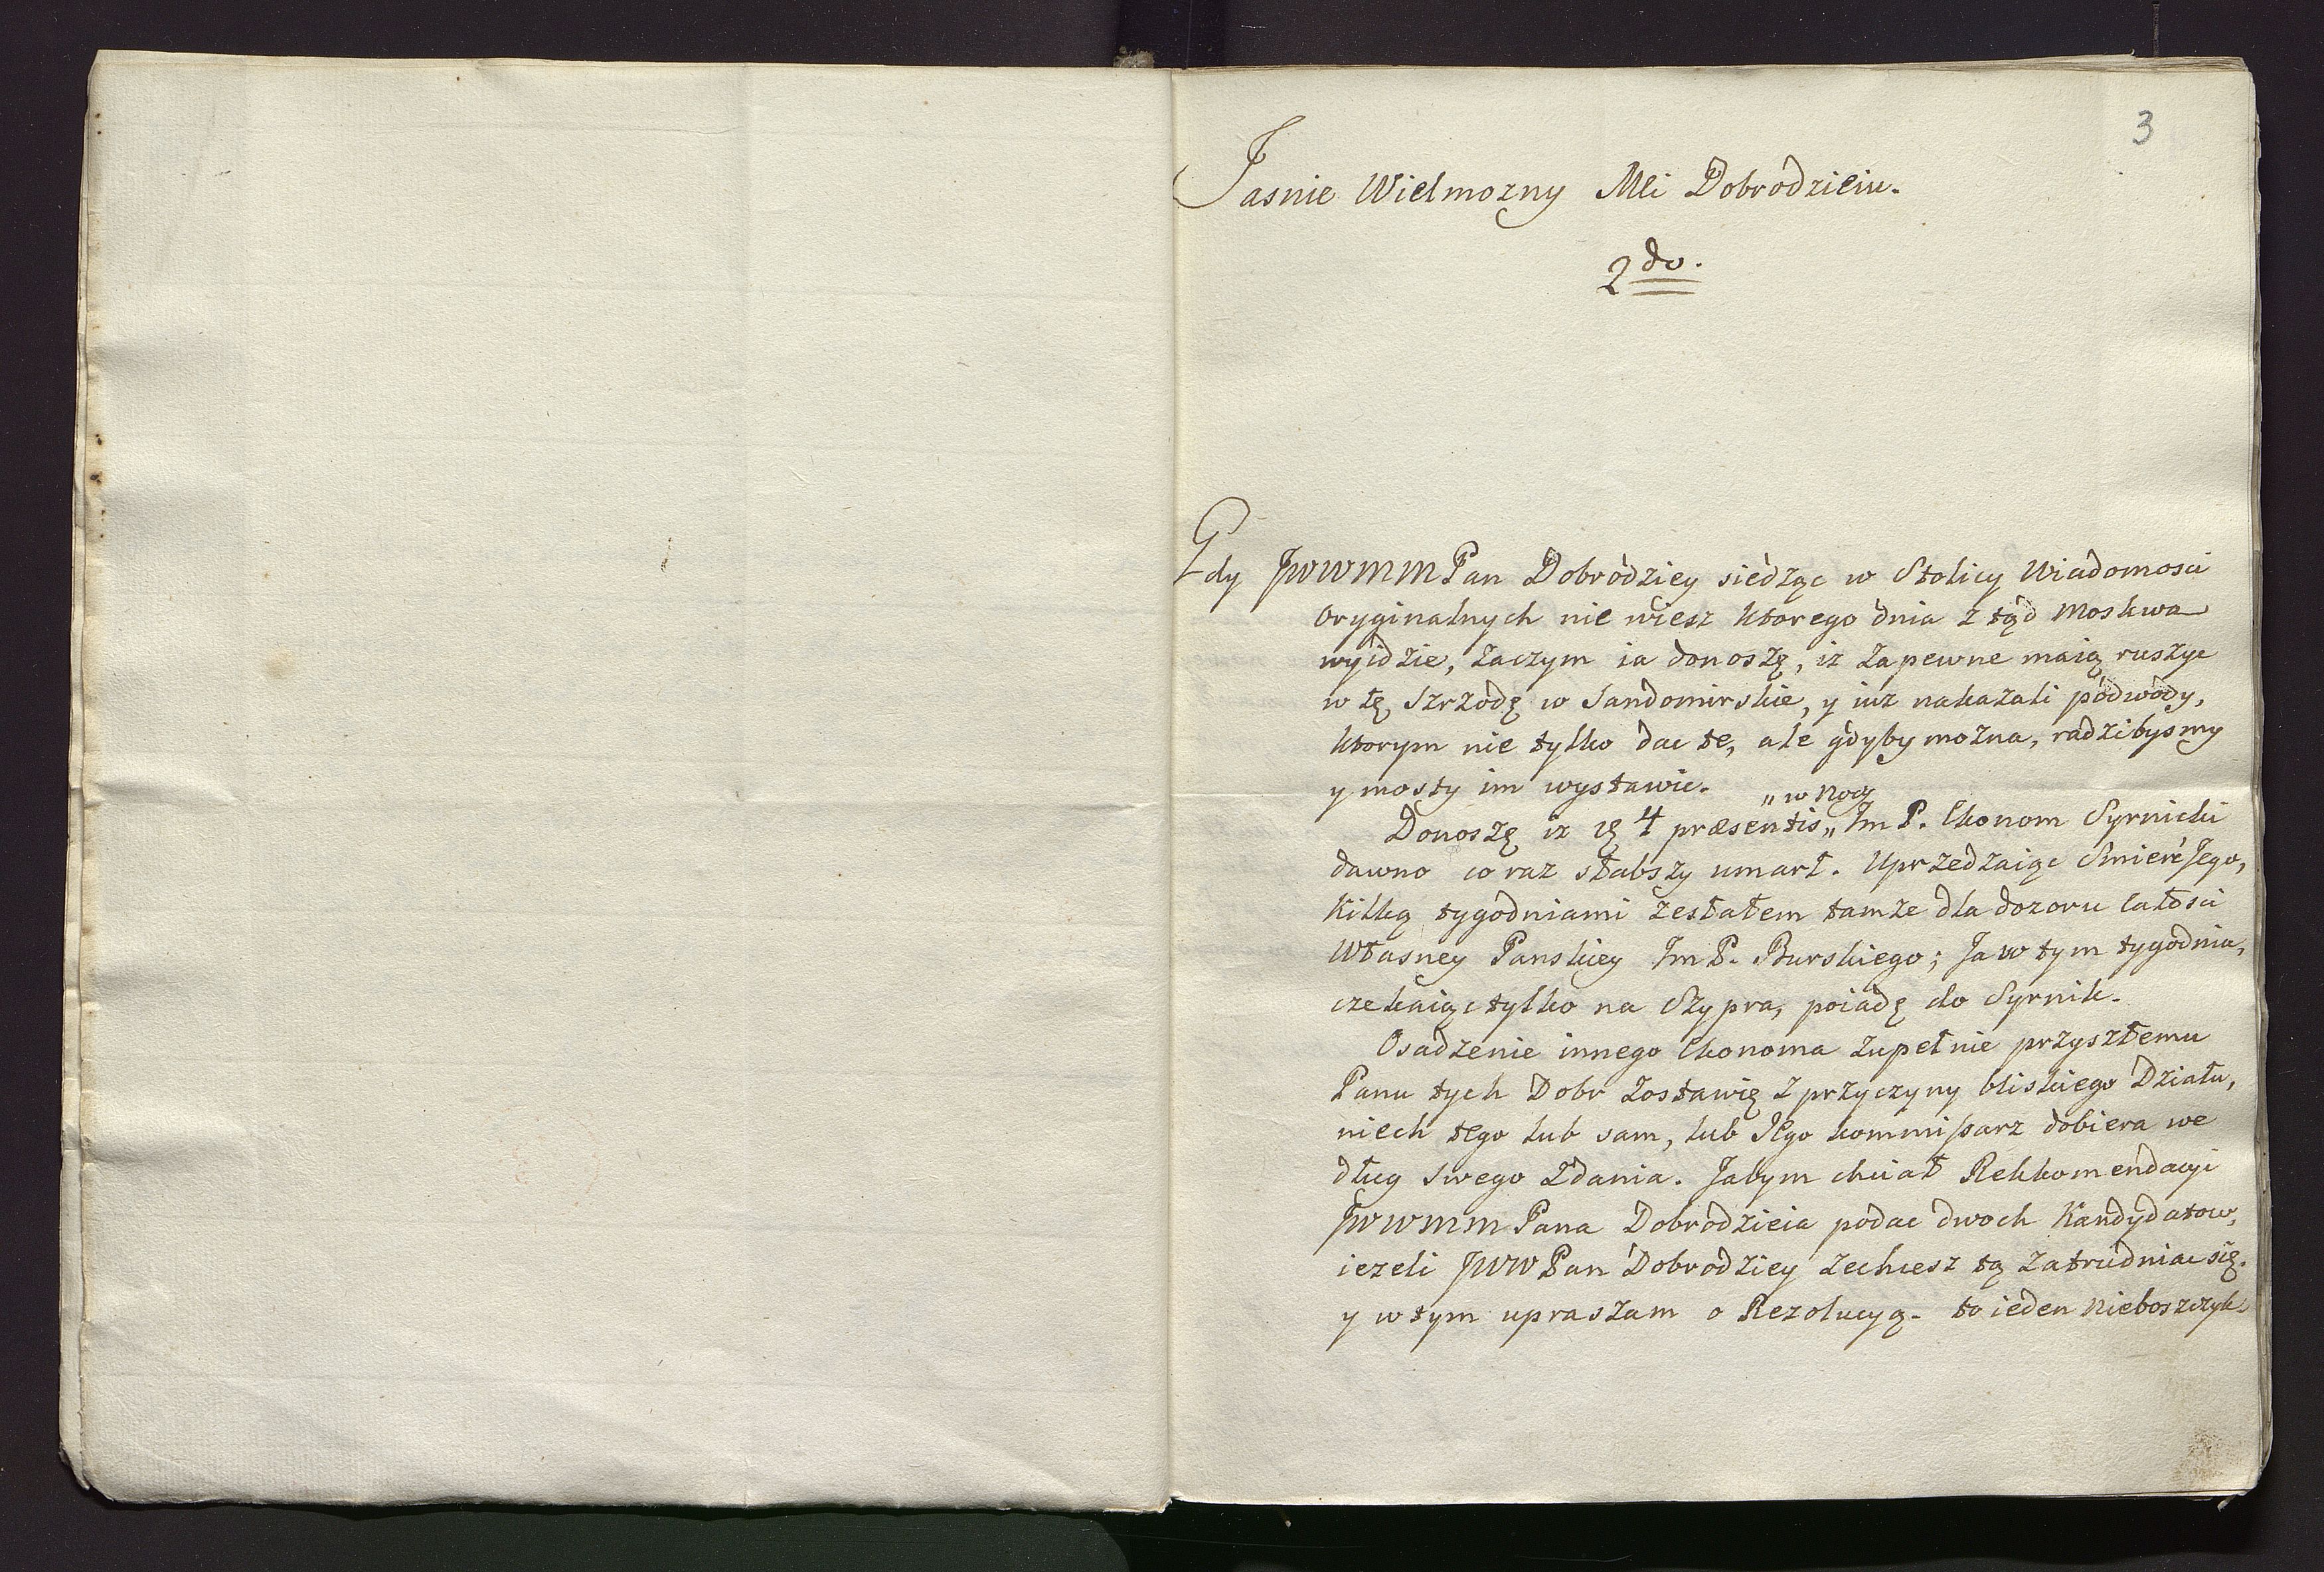 3
Jasnie Wielmozny Mci Dobrodzieiu.
2do.
Gdy JWWMMPan Dobrodziey siedząc w Stolicy Wiadomosci
Oryginalnych nie wiesz ktorego dnia z tąd Moskwa
wyidzie, zaczym ia donoszę, iz zapewne maią ruszyc
w tę Szrzodę w Sandomirskie, y iuz nakazali podwody,
ktorym nie tylko dac te, ale gdyby mozna, radzibysmy
y mosty im wystawic.
„w nocy
Donoszę iz 4 præsentis„ Im P. Ekonom Syrnicki
dawno co raz słabszy umarł. Uprzedzaiąc Smierć Jego,
Kilką tygodniami zesłałem tamze dla dozoru całosci
Własney Panskiey Im P. Burskiego; Ja w tym tygodniu,
czekaiąc tylko na Szypra, poiadę do Syrnik.
Osadzenie innego Ekonoma zupełnie przyszłemu
Panu tych Dobr zostawię z przyczyny bliskiego Działu,
niech tego lub sam, lub Jego kommissarz dobiera we
dług swego Zdania. Jabym chciał Rekkomendacyi
JWWMM Pana Dobrodzieia podac dwoch Kandydatow,
iezeli JWWPan Dobrodziey zechcesz tą zatrudniac się.
y w tym upraszam o Rezolucyą. to ieden Nieboszczyk